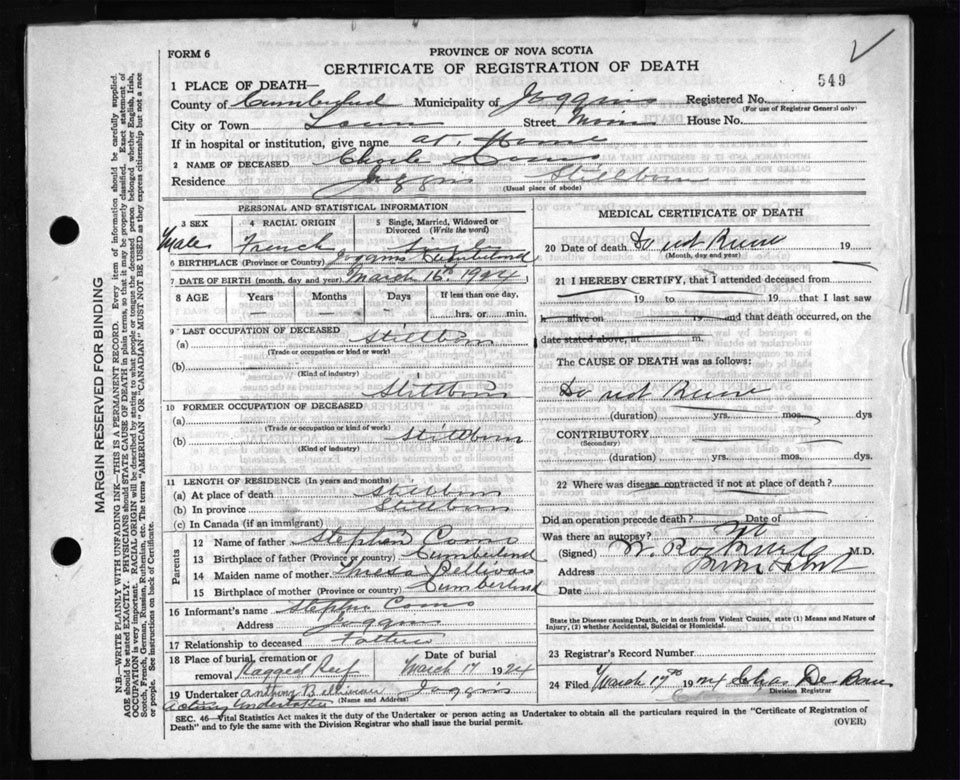 FORM 6
PROVINCE OF NOVA SCOTIA
CERTIFICATE OF REGISTRATION OF DEATH
549
1 PLACE OF DEATH—
County of Municipality of Joggins Registered No.
(For use of Registrar General only)
City or Town Street Main House No.
If in hospital or institution, give name at Home
2 NAME OF DECEASED
Residence Joggins Stillborn
(Usual place of abode)
PERSONAL AND STATISTICAL INFORMATION
3 SEX 4 RACIAL ORIGIN 5 Single, Married, Widowed or Divorced (Write the word)
Male French Single
6 BIRTHPLACE (Province or Country) Joggins Cumberland
7 DATE OF BIRTH (month, day and year) March 16 1924
8 AGE Years Months Days If less than one day,
— — — hrs. or min.
9 LAST OCCUPATION OF DECEASED
(a) Stillborn
(Trade or occupation or kind or work)
(b)
(Kind of industry)
Stillborn
10 FORMER OCCUPATION OF DECEASED
(a)
(Trade or occupation or kind of work)
(b) Stillborn
(Kind of industry)
11 LENGTH OF RESIDENCE (In years and months)
(a) At place of death Stillborn
(b) In province Stillborn
(c) In Canada (if an immigrant)
Parents
12 Name of father Stephen Como
13 Birthplace of father (Province or country) Cumberland
14 Maiden name of mother
15 Birthplace of mother (Province or country) Cumberland
16 Informant's name Stephen Como
Address Joggins
17 Relationship to deceased Father
18 Place of burial, cremation or removal Ragged Reef Date of burial March 17 1924
19 Undertaker Anthony Joggins
(Name and Address)
Acting Undertaker
MEDICAL CERTIFICATE OF DEATH
20 Date of death 19
(Month, day and year)
21 I HEREBY CERTIFY, that I attended deceased from
19 to 19 that I last saw
h alive on 19 and that death occurred, on the
date stated above, at m.
The CAUSE OF DEATH was as follows:
(duration) yrs. mos. dys
CONTRIBUTORY
(Secondary)
(duration) yrs. mos. dys.
22 Where was disease contracted if not at place of death?
Did an operation precede death? Date of
Was there an autopsy? No
(Signed) M.D.
Address
State the Disease causing Death, or in death from Violent Causes, state (1) Means and Nature of
Injury, (2) whether Accidental, Suicidal or Homicidal.
23 Registrar's Record Number
24 Filed March 17th 1924 Chas
Division Registrar
SEC. 46—Vital Statistics Act makes it the duty of the Undertaker or person acting as Undertaker to obtain all the particulars required in the "Certificate of Registration of
Death" and to fyle the same with the Division Registrar who shall issue the burial permit.
(OVER)
MARGIN RESERVED FOR BINDING
N.B.—WRITE PLAINLY WITH UNFADING INK—THIS IS A PERMANENT RECORD. Every item of information should be carefully supplied.
AGE should be stated EXACTLY. PHYSICIANS should STATE CAUSE OF DEATH in plain terms, so that it may be properly classified. Exact statement of
OCCUPATION is very important. RACIAL ORIGIN will be described by stating to what people or tongue the deceased person belonged whether English, Irish,
Scotch, French, German, Russian, Ruthenian, etc. The terms "AMERICAN" OR "CANADIAN" MUST NOT BE USED as they express citizenship but not a race
or people. See instructions on back of Certificate.